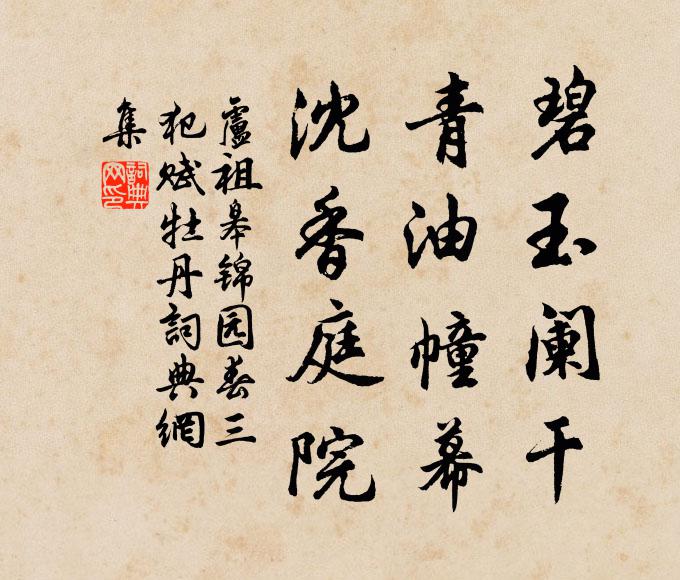 碧玉阑干
青油幢幕
沈香庭院
盧祖皋锦园春三
犯赋牡丹詞典網
集
詞典網印